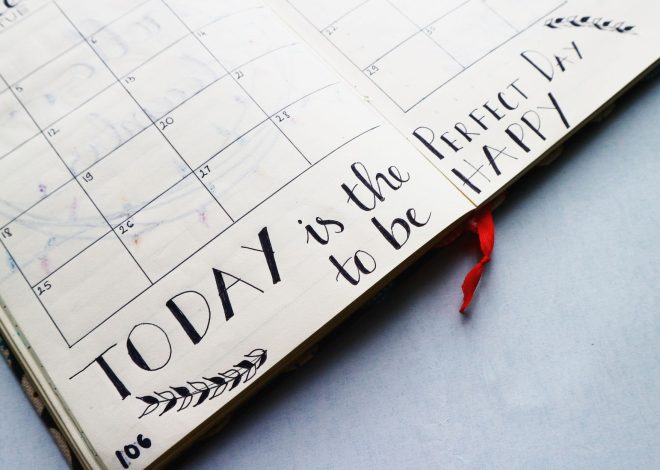 TUE
5 6
12 13 14
18 19 20 21
25 26 27 28
22
29 30 31
TODAY is the PERFECT DAY
to be HAPPY
106